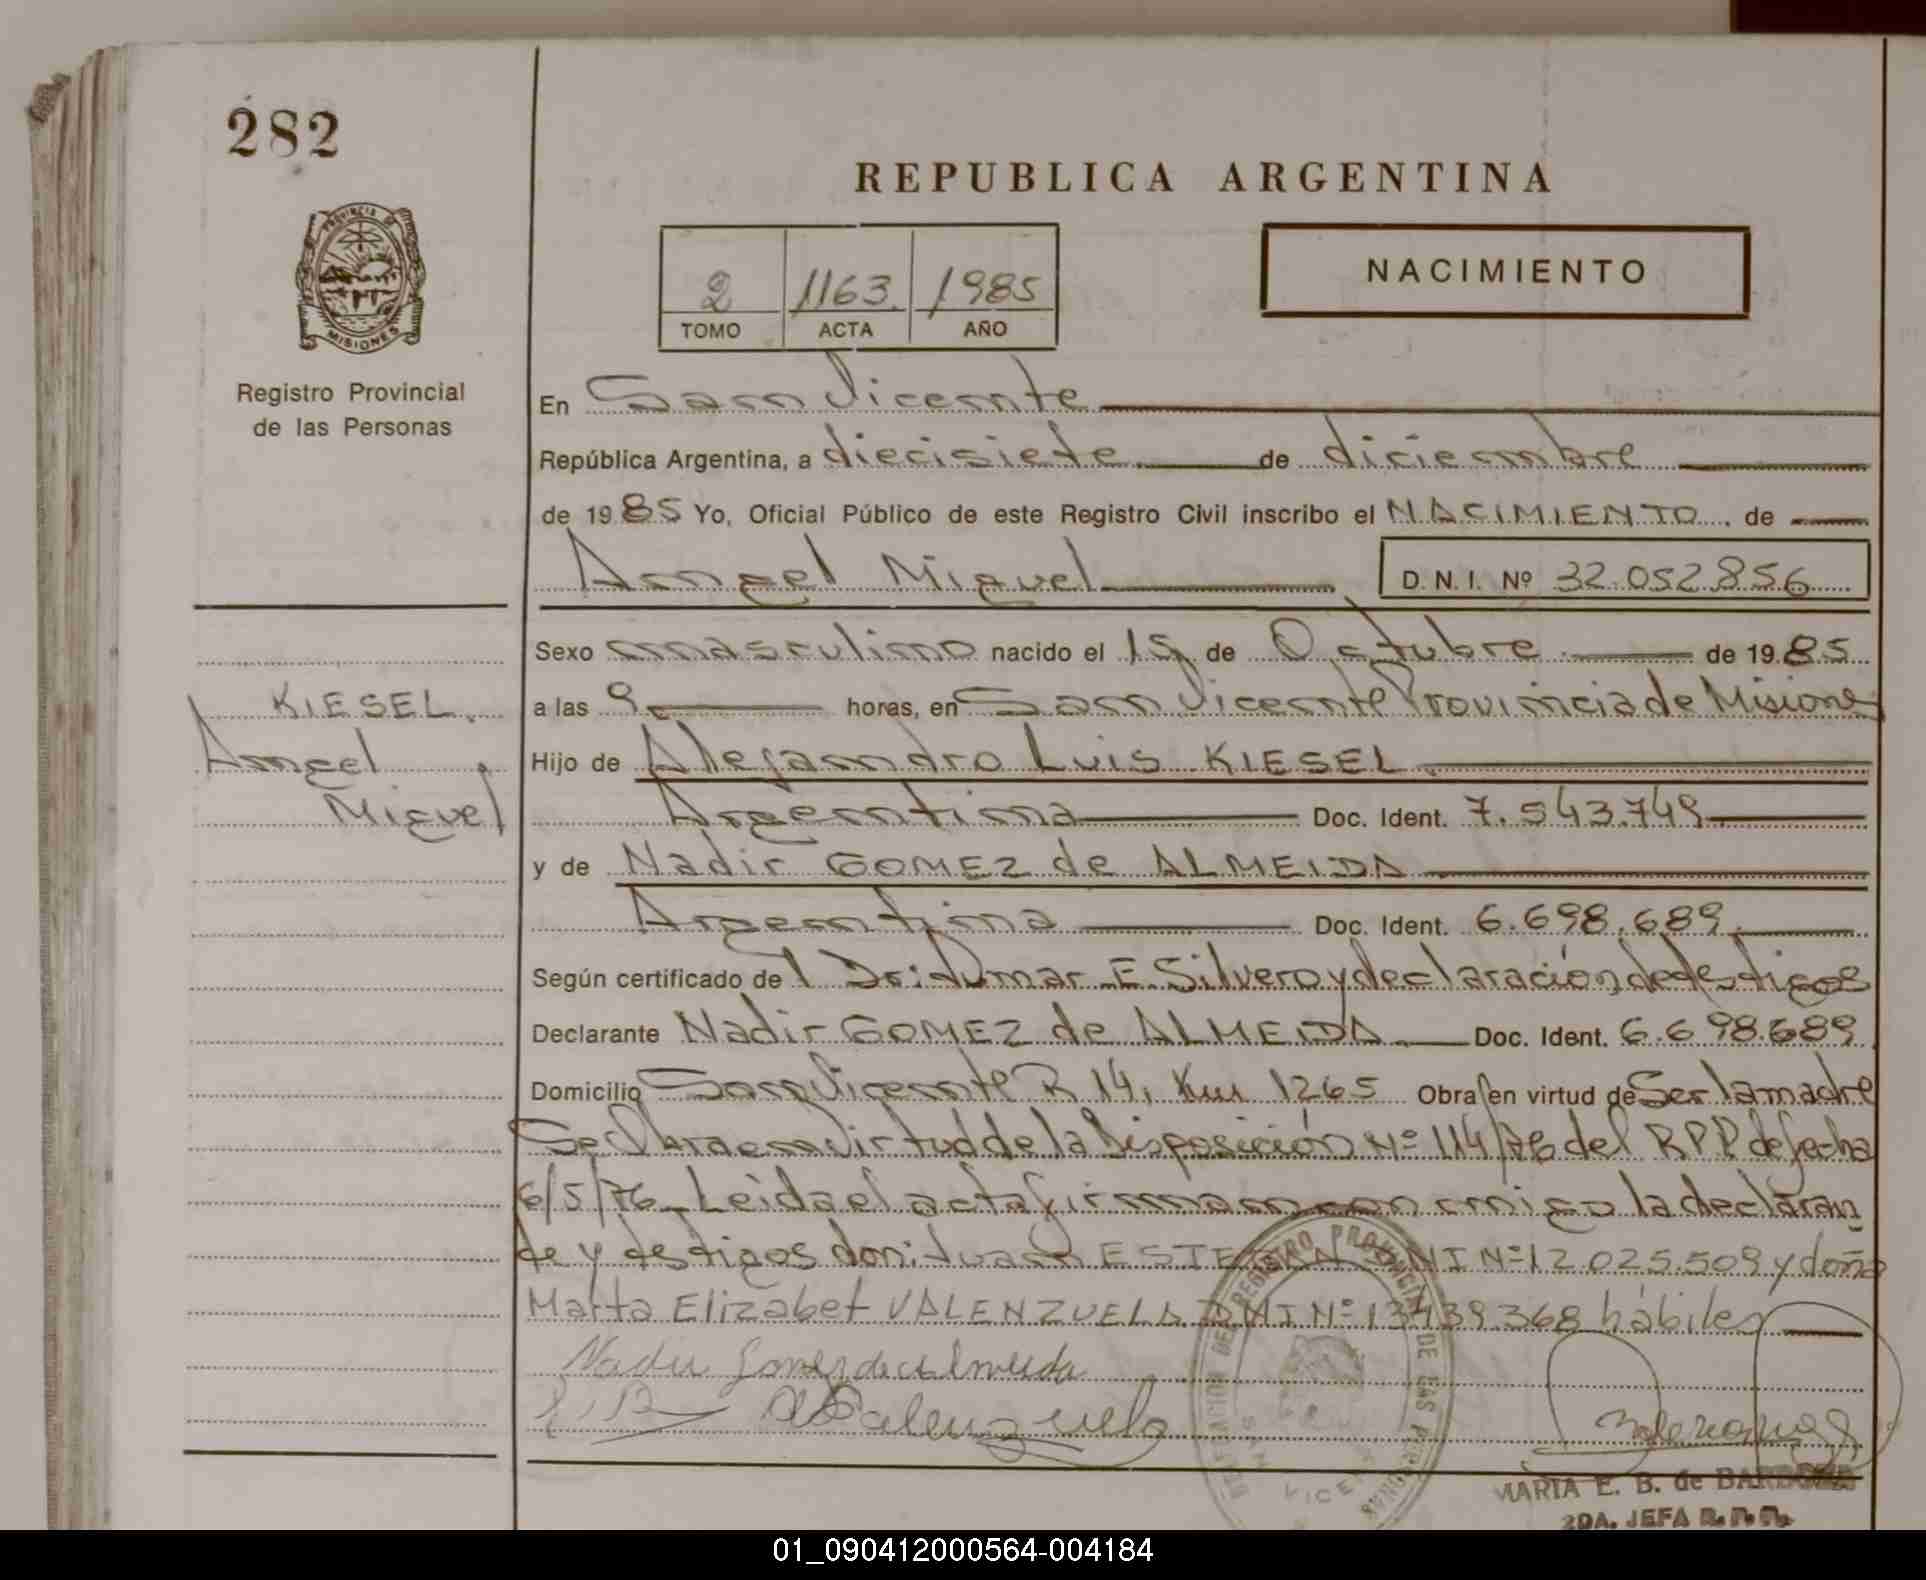 282
REPUBLICA ARGENTINA
PROVINCIA DE
MISIONES
Registro Provincial
de las Personas
2 1163 1985
TOMO ACTA AÑO
NACIMIENTO
En San Vicente
República Argentina, a diecisiete de diciembre
de 1985 Yo, Oficial Público de este Registro Civil inscribo el NACIMIENTO de
Angel Miguel D.N.I. Nº 32.052.856
Sexo masculino nacido el 15 de Octubre de 1985
a las 9 horas, en San Vicente Provincia de Misiones
KIESEL.
Angel
Miguel
Hijo de Alejandro Luis KIESEL
Argentina Doc. Ident. 7.543.749
y de Nadir GOMEZ de ALMEIDA
Argentina Doc. Ident. 6.698.689
Según certificado de Dr: Dumar E. Silvero y declaración de testigos
Declarante Nadir GOMEZ de ALMEIDA Doc. Ident. 6.698.689
Domicilio San Vicente R 14, Km 1265 Obra en virtud de Ser la madre
Se Obra en virtud de la Disposición Nº 114/76 del R.P.P. de fecha
6/5/76 Leida el acta firman conmigo la declaran
te y testigos don: Juan ESTEBAN DNI Nº 12.025.509 y doña
Marta Elizabet VALENZUELA DNI Nº 13439.368 hábiles
Nadir Gomez de almeida
Valenzuela
DELEGACION DEL REGISTRO PROVINCIAL DE LAS PERSONAS
SAN VICENTE
MARIA E. B. de BARBOZA
2DA. JEFA R.P.P.
01_090412000564-004184